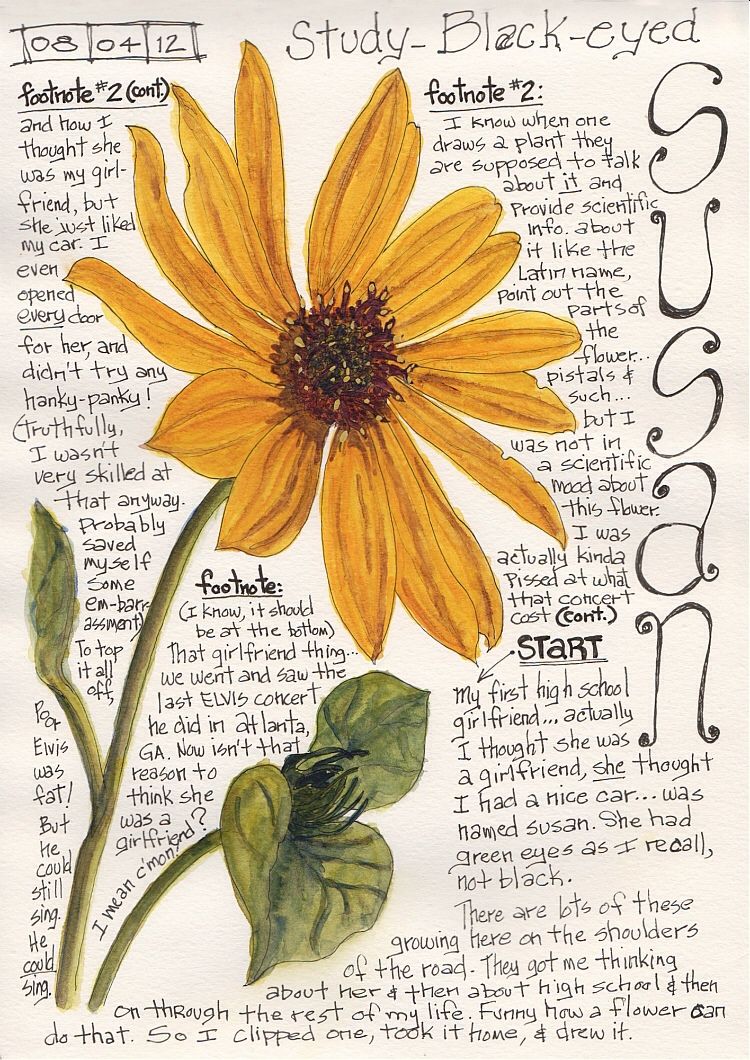 08 04 12
Study- Black-eyed
Susan
START
My first high school
girlfriend... actually
I thought she was
a girlfriend, she thought
I had a nice car... was
named susan. She had
green eyes as I recall,
not black.
There are lots of these
growing here on the shoulders
of the road. They got me thinking
about her & then about high school & then
on through the rest of my life. Funny how a flower can
do that. So I clipped one, took it home, & drew it.
footnote:
(I know, it should
be at the bottom)
That girlfriend thing...
we went and saw the
last ELVIS concert
he did in atlanta,
GA. Now isn't that
reason to
think she
was a
girlfriend?
I mean c'mon!
footnote #2:
I know when one
draws a plant they
are supposed to talk
about it and
Provide scientific
Info. about
it like the
Latin name,
point out the
parts of
the
flower...
pistals &
such...
but I
was not in
a scientific
mood about
this flower.
I was
actually kinda
Pissed at what
that concert
cost (cont.)
footnote #2 (cont.)
and how I
thought she
was my girl-
friend, but
she just liked
my car. I
even
opened
every door
for her, and
didn't try any
hanky-panky!
(Truthfully,
I wasn't
very skilled at
that anyway.
Probably
saved
myself
some
em-barr-
assment)
To top
it all
off,
Poor
Elvis
was
fat!
But
He
could
still
sing.
He
could
sing.